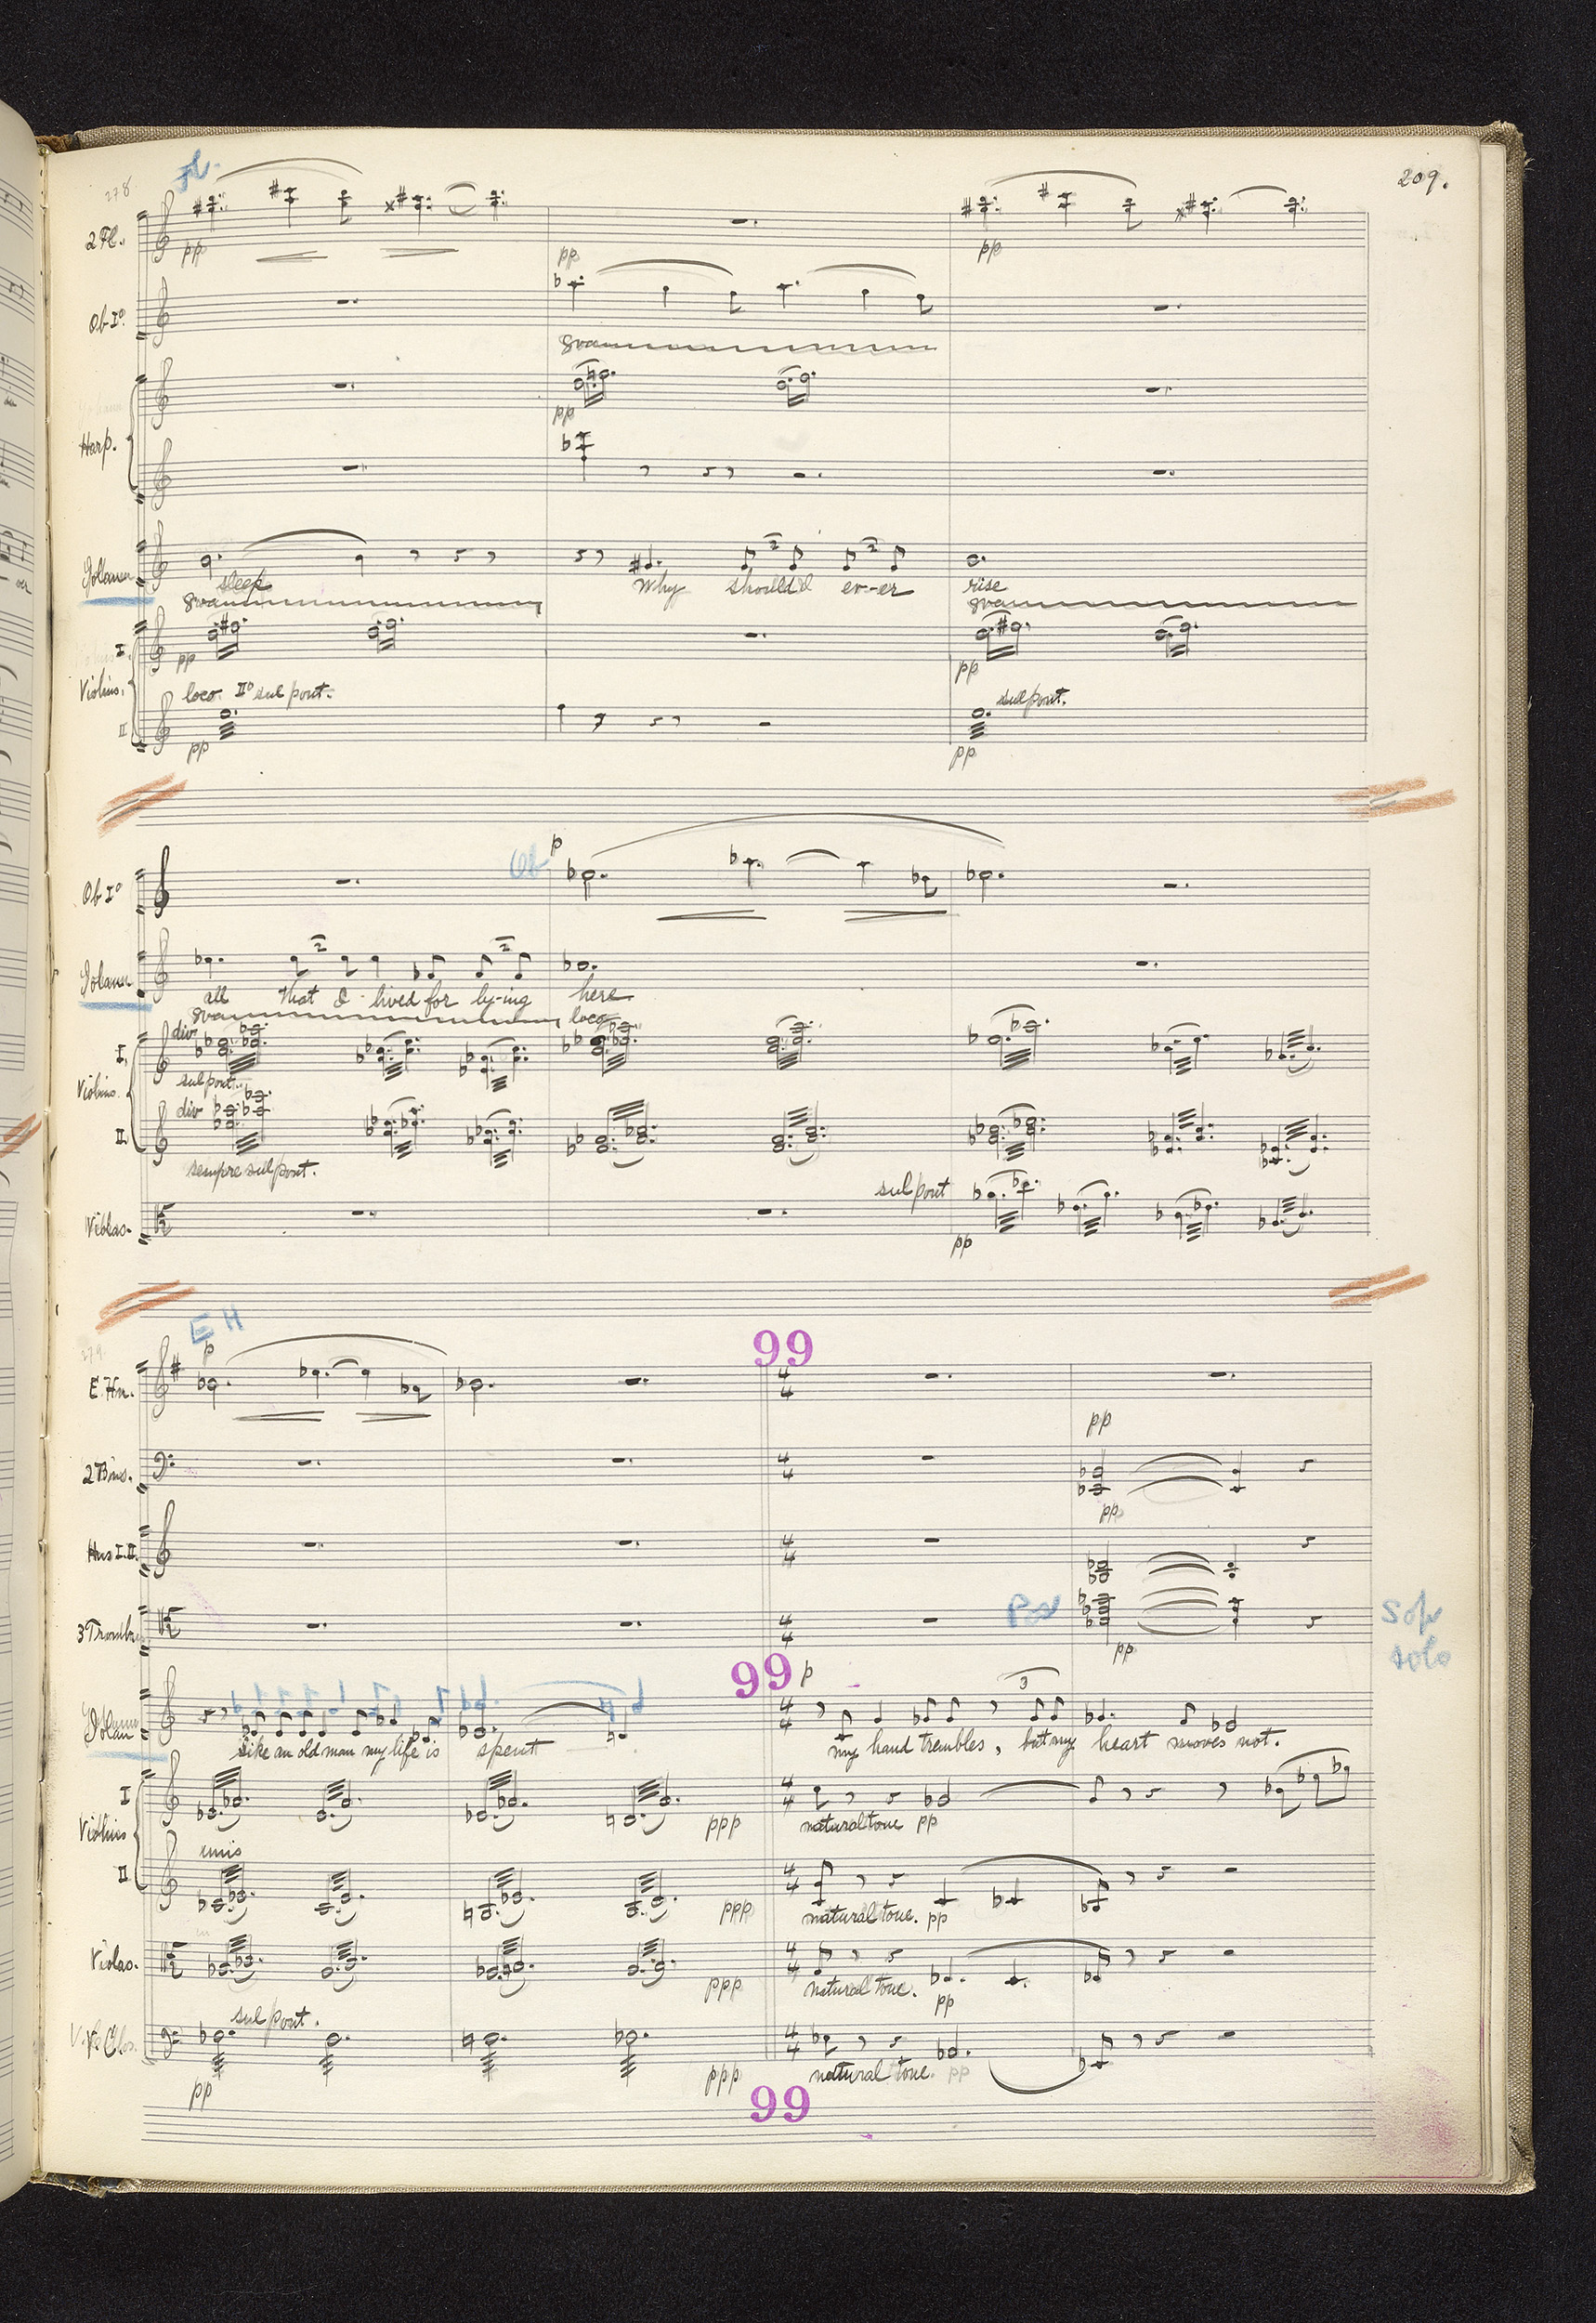 209.
278
Fl.
2 Fl.
pp
pp
pp
Ob Iº
8va
Harp.
pp
sleep Why should I ev-er rise
8va 8va
I.
pp pp
Violins.
loco. IIº sul pont. sul pont.
II
pp pp
Ob p
Ob Iº
all that I lived for ly-ing here
8va loco
div
I.
sul pont.
Violins.
div
II.
sempre sul pont.
sul pont
Violas.
pp
E H
279.
p
99
E. Hn.
4 4
pp
2 Bns.
4 4
pp
Hns I. II.
4 4
Pos
3 Tromb
4 4
pp
Sop
solo
99 p
3
4 4
Like an old man my life is spent my hand trembles, but my heart moves not.
I
4 4
Violins
ppp natural tone pp
unis
II
4 4
ppp natural tone. pp
Violas.
4 4
ppp natural tone. pp
sul pont.
4 4
pp ppp natural tone. pp
99